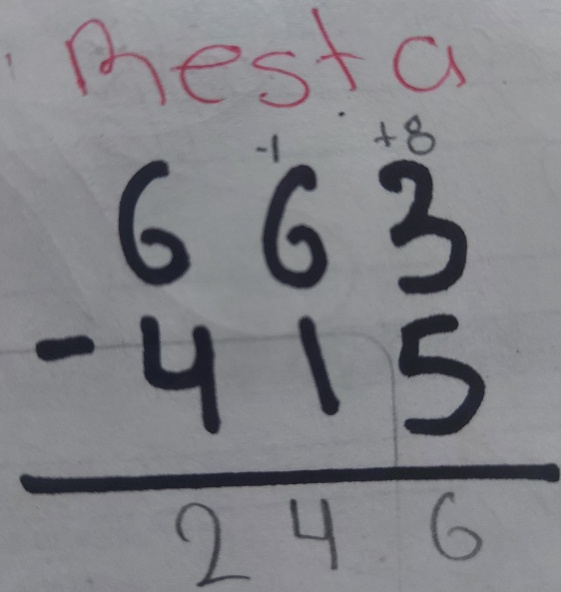 Resta
-1 +8
663
- 415
246